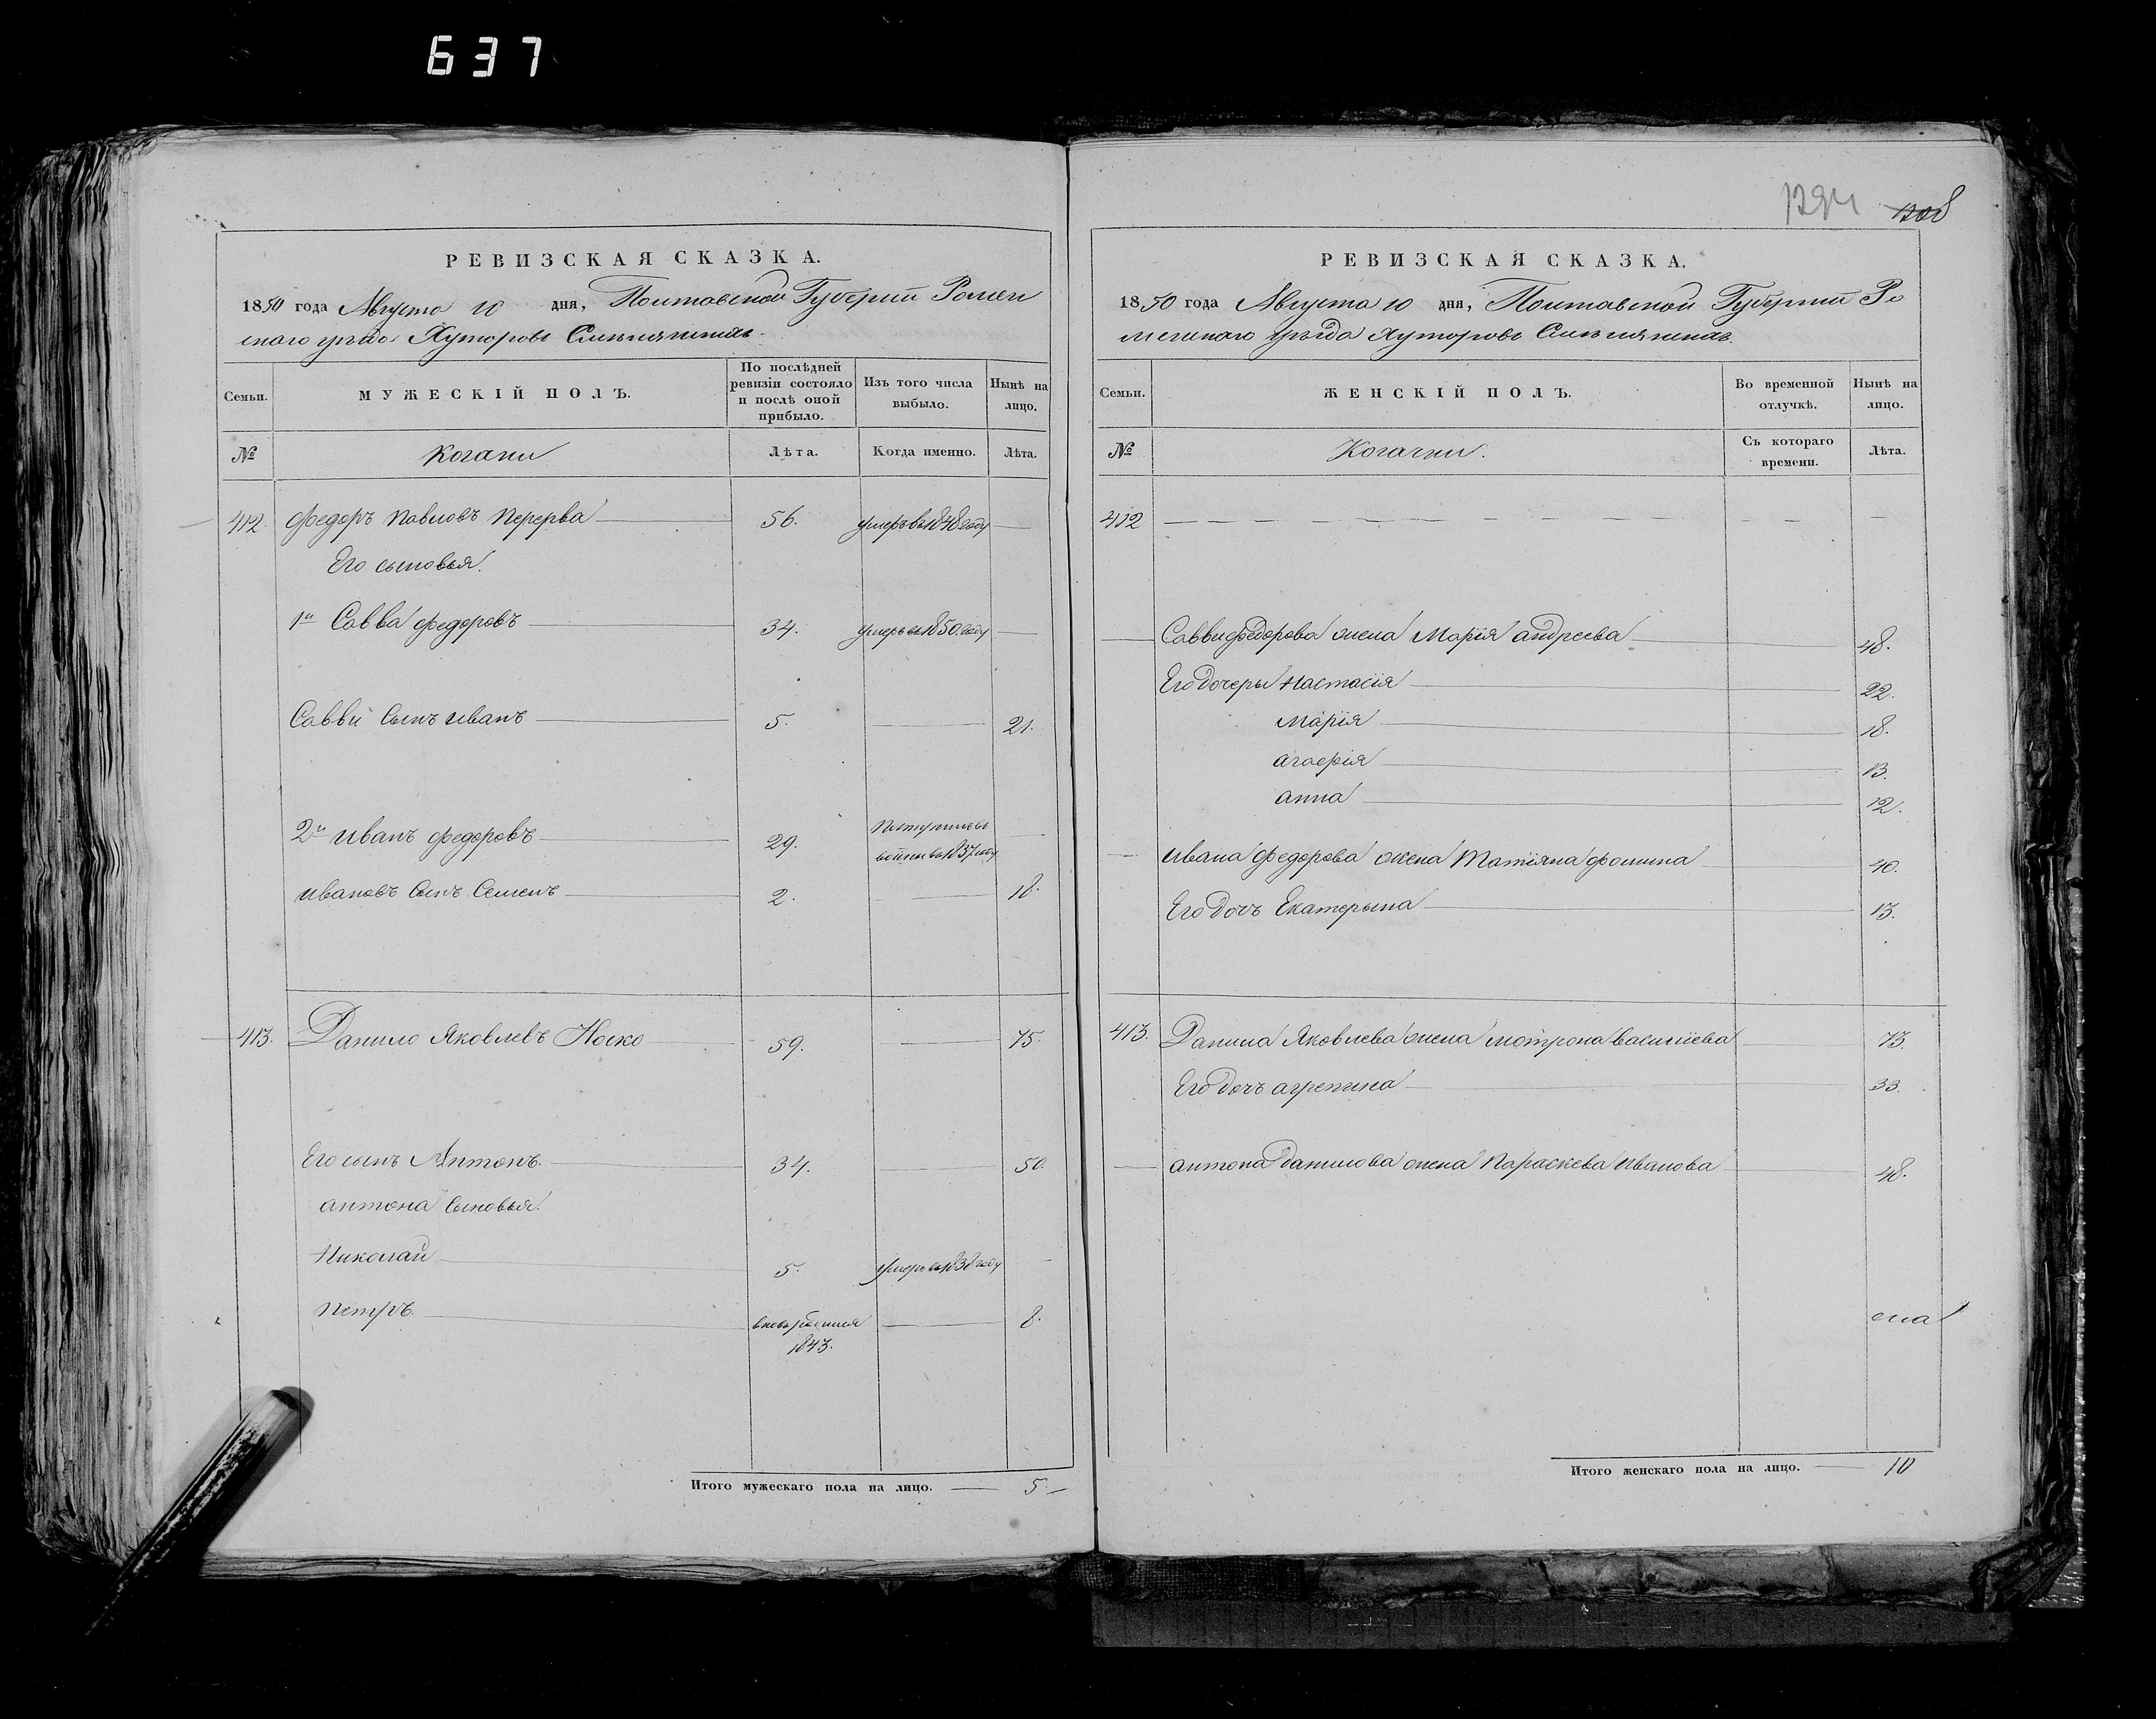 637
РЕВИЗСКАЯ СКАЗКА.
1850 года Августа 10 дня, Полтавской Губернии Ромен
скаго уезда Хуторовъ
Семьи.
МУЖЕСКІЙ ПОЛЪ.
По послѣдней ревизіи состояло и послѣ оной прибыло.
Изъ того числа выбыло.
Нынѣ на лицо.
№
Козаки
Лѣта.
Когда именно.
Лѣта.
412. Федоръ Павловъ Перерва 56. умеръ въ 1848 году
Его сыновья.
1й Савва Федоровъ 34. умеръ въ 1850. году
Саввы Сынъ Иванъ 5. 21.
2й Иванъ Федоровъ 29. поступилъ въ
въ 1837 году
Ивановъ Сынъ Семенъ 2. 18.
413. Данило Яковлевъ Носко 59. 75.
Его сынъ Антонъ. 34. 50.
Антона Сыновья.
Николай 5. умеръ въ 1838 году
Петръ. вновь родился 8.
1843.
Итого мужескаго пола на лицо. 5.
1294 1208
РЕВИЗСКАЯ СКАЗКА.
1850 года Августа 10 дня, Полтавской Губернии Ро
менскаго уѣзда Хуторовъ
Семьи.
ЖЕНСКІЙ ПОЛЪ.
Во временной отлучкѣ.
Нынѣ на лицо.
№
Козачки.
Съ котораго времени.
Лѣта.
412
Саввы Федорова жена Марія Андреева 48.
Его дочеры Настасія 22.
Марія 18.
Агафія 13.
Анна 12.
Ивана Федорова жена Татіяна Фомина 40.
Его дочъ Екатерына 13.
413. Данила Яковлева жена Мотрона Василіева 73.
Его дочъ Агрепина 33.
Антона Данилова жена Параскева Иванова 48.
Итого женскаго пола на лицо. 10